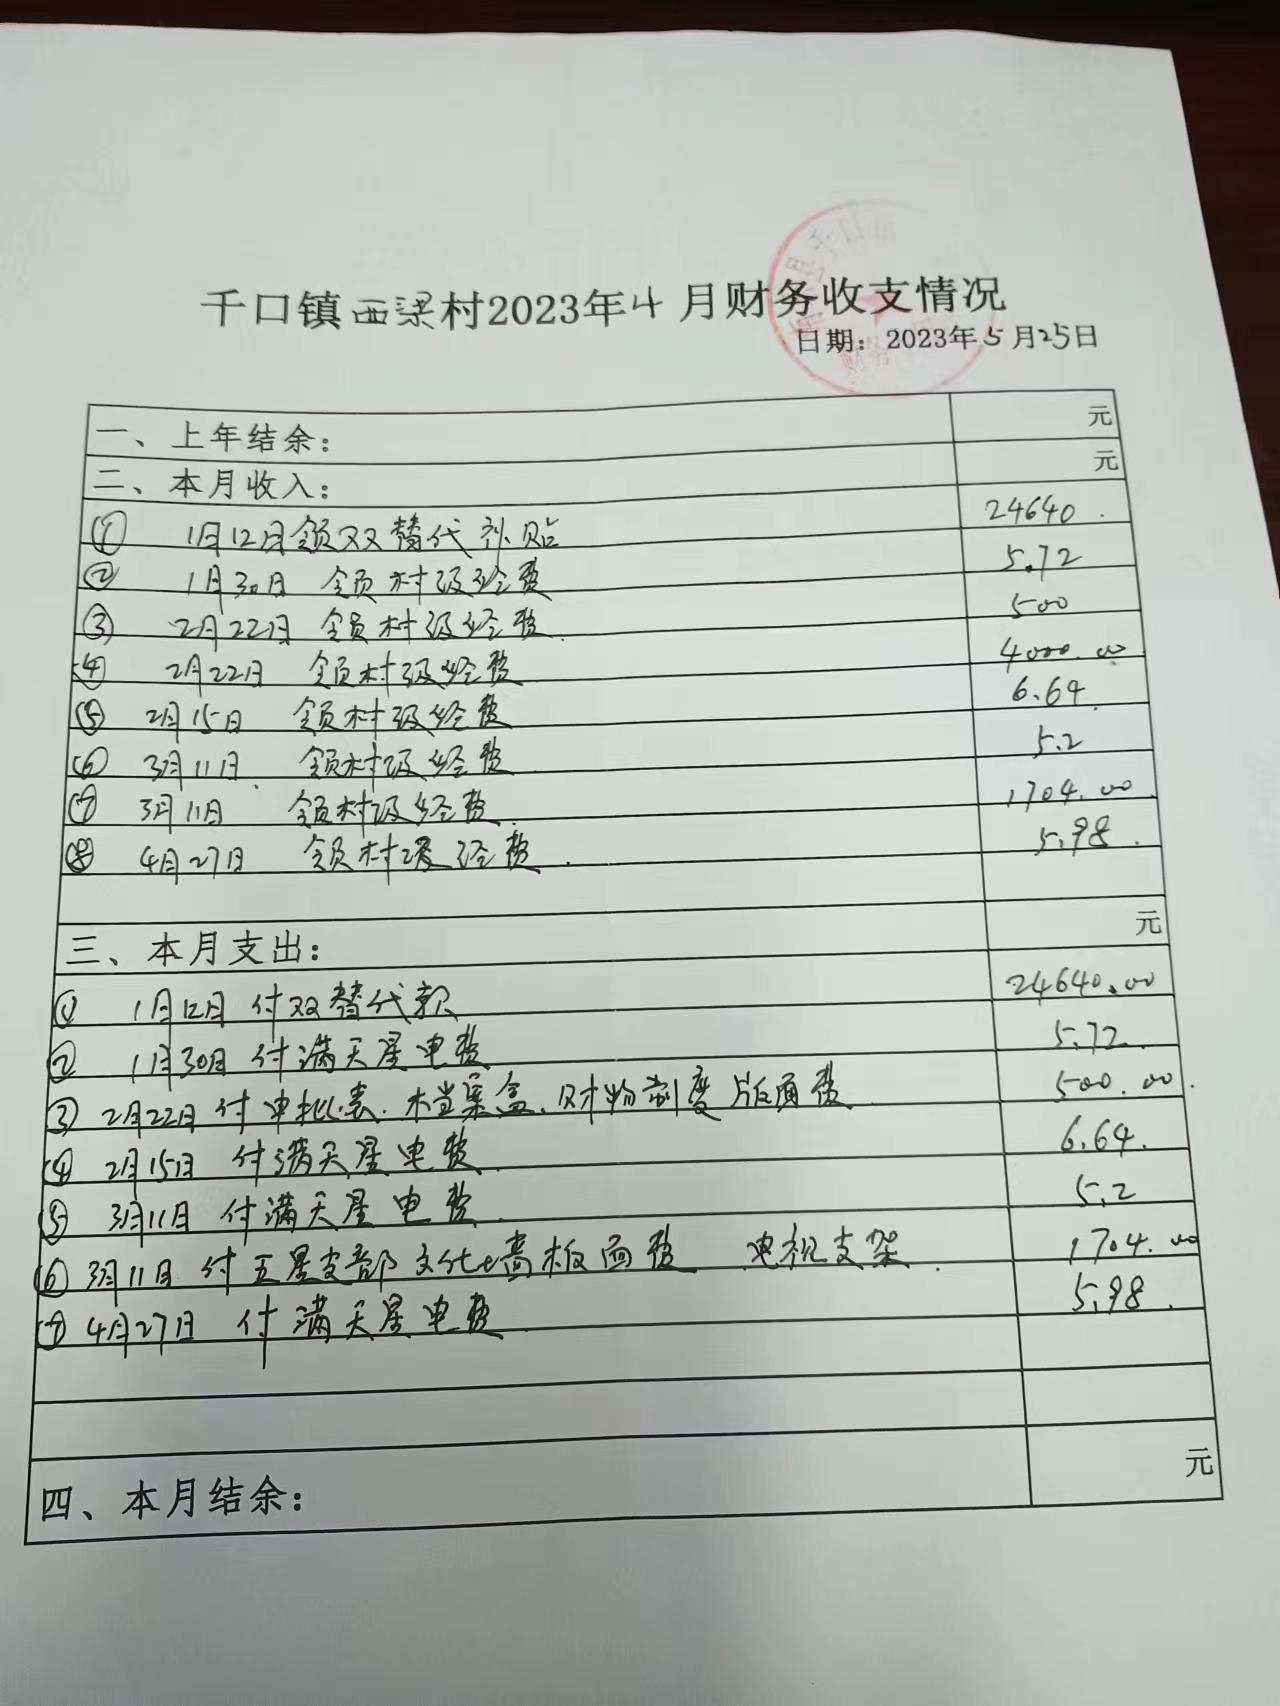 千口镇西梁村2023年4月财务收支情况
日期：2023年5月25日
一、上年结余： 元
二、本月收入： 元
① 1月12日领双替代补贴 24640.
② 1月30日 领村级经费 5.72
③ 2月22日 领村级经费. 500
④ 2月22日 领村级经费 4000.00
⑤ 2月15日 领村级经费 6.64
⑥ 3月11日. 领村级经费. 5.2
⑦ 3月11日 领村级经费. 1704.00
⑧ 4月27日 领村级经费. 5.98.
三、本月支出： 元
① 1月12日 付双替代款 24640.00
② 1月30日 付满天星电费 5.72.
③ 2月22日 付审批表.档案盒.财物制度版面费. 500.00.
④ 2月15日 付满天星电费. 6.64.
⑤ 3月11日 付满天星电费. 5.2
⑥ 3月11日 付五星支部文化墙板面费 电视支架. 1704.00
⑦ 4月27日 付满天星电费. 5.98.
四、本月结余： 元